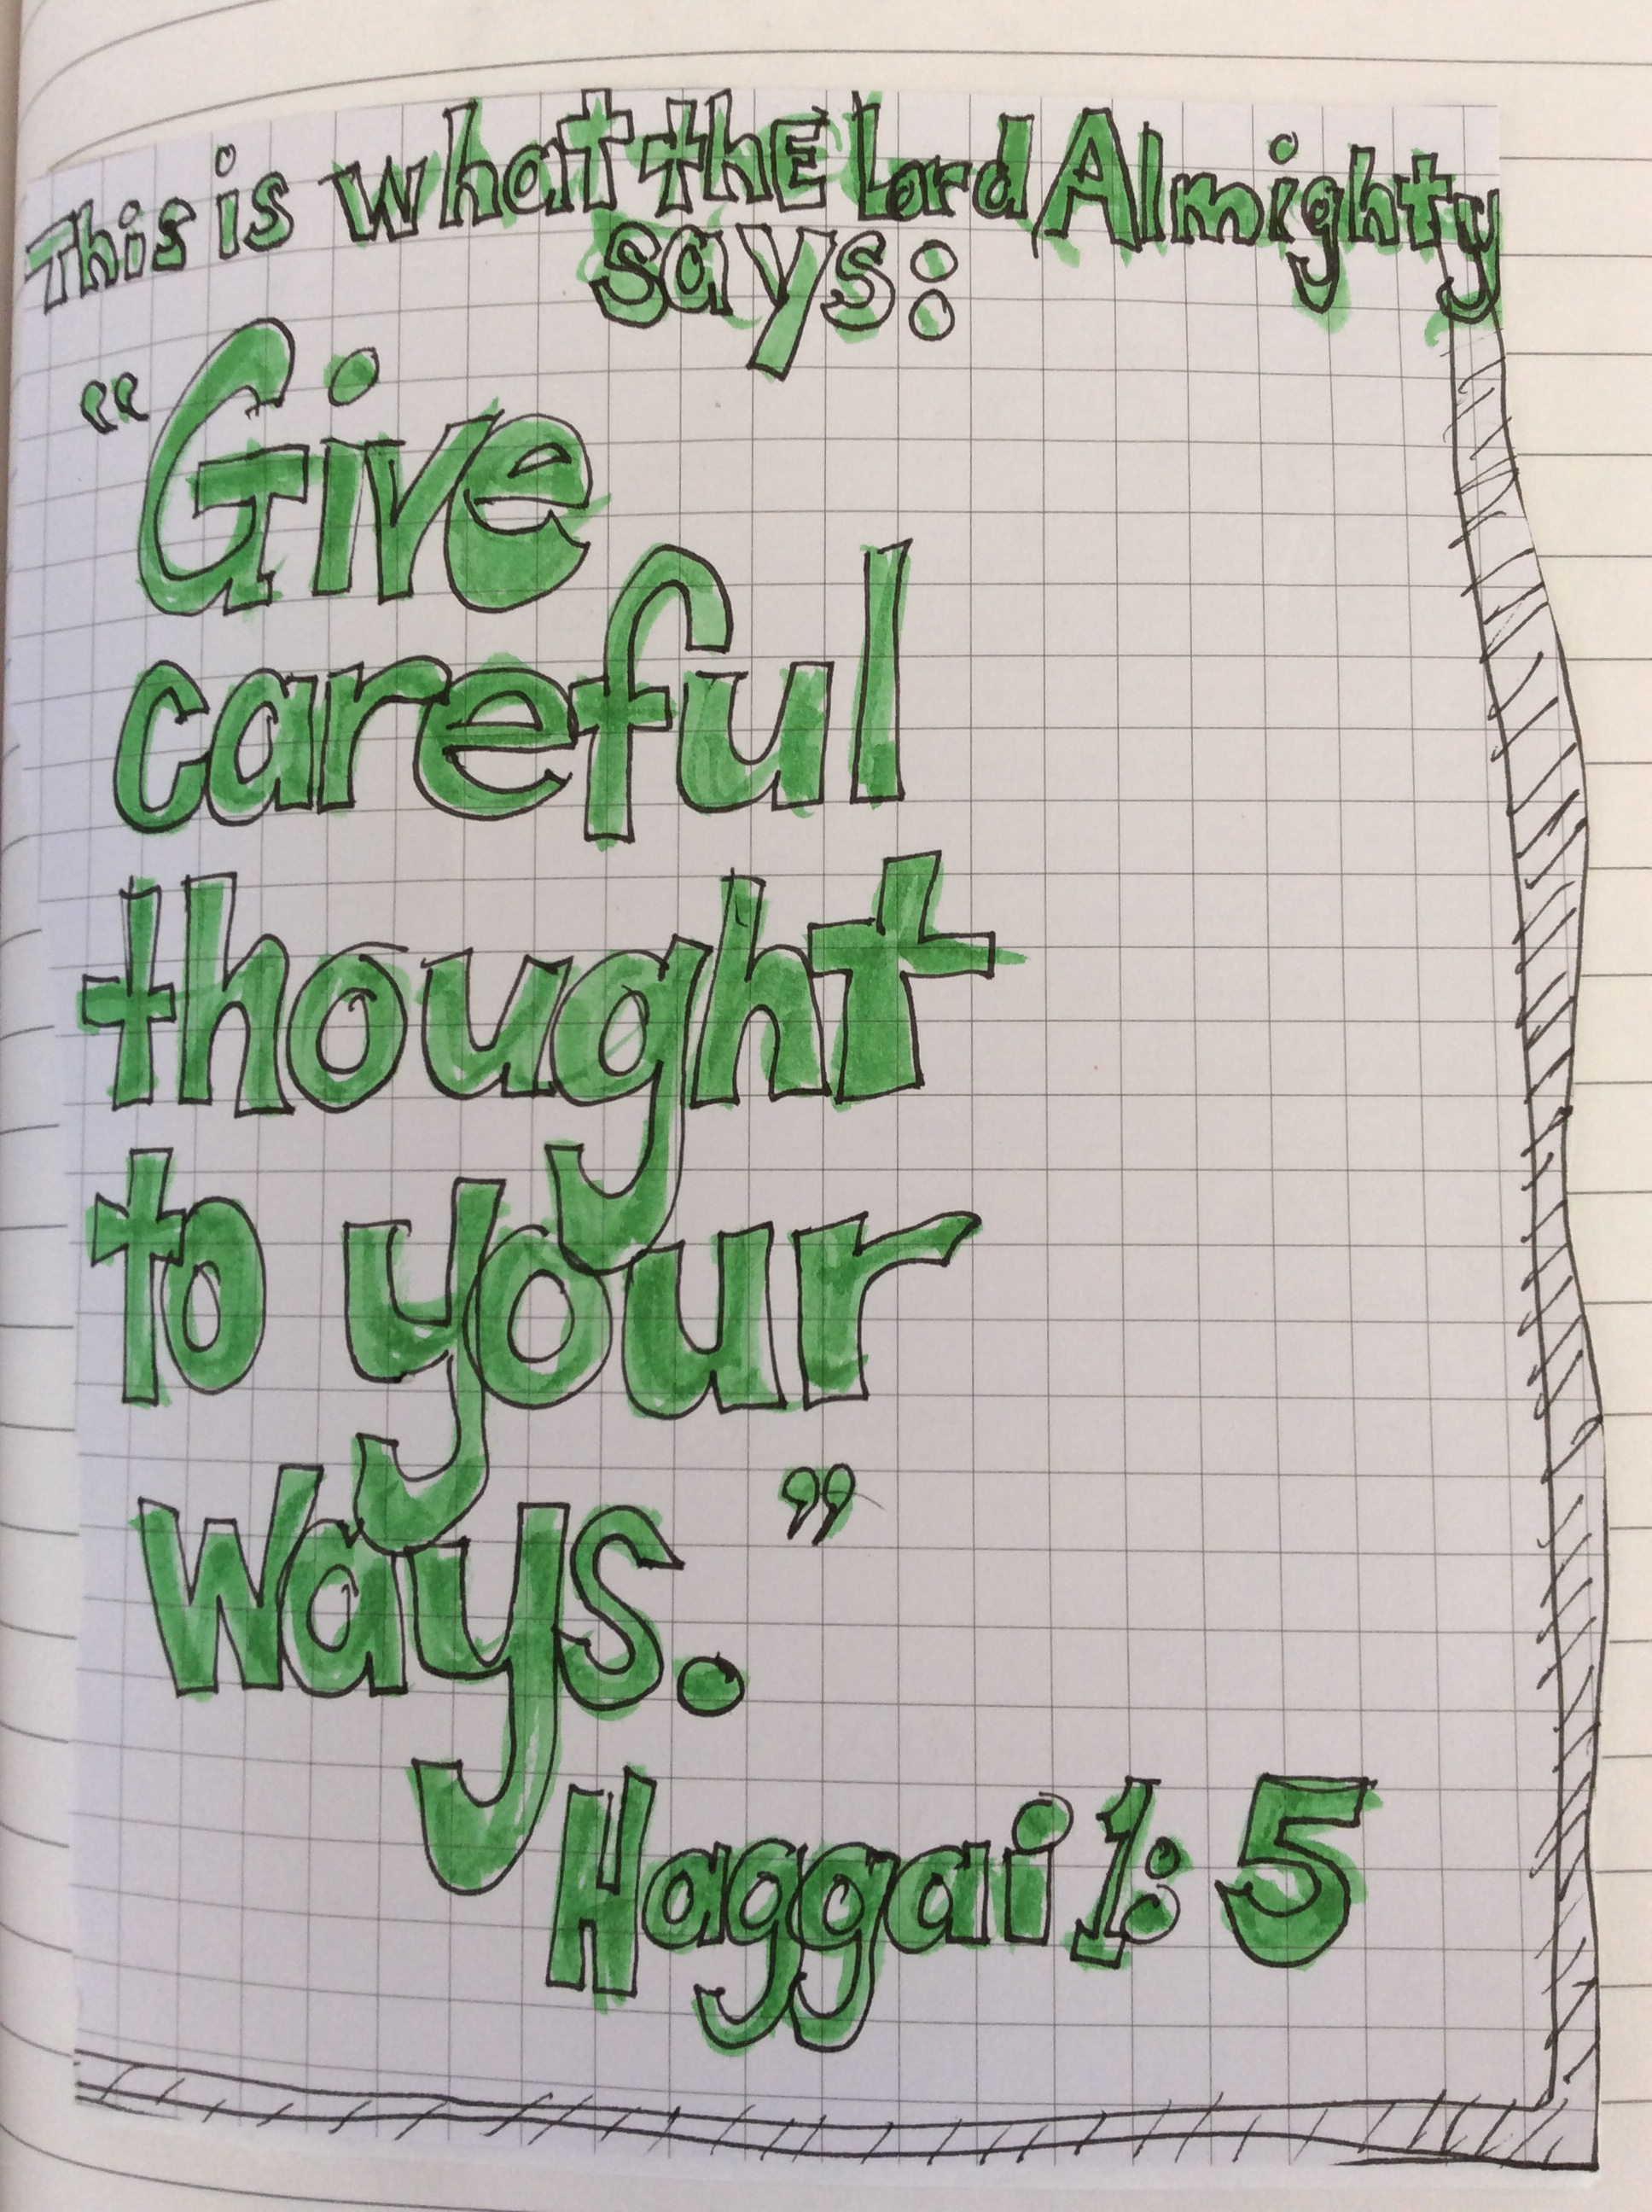 This is what thE Lord Almighty
says:
“Give
careful
thought
to your
ways.”
Haggai 1:5